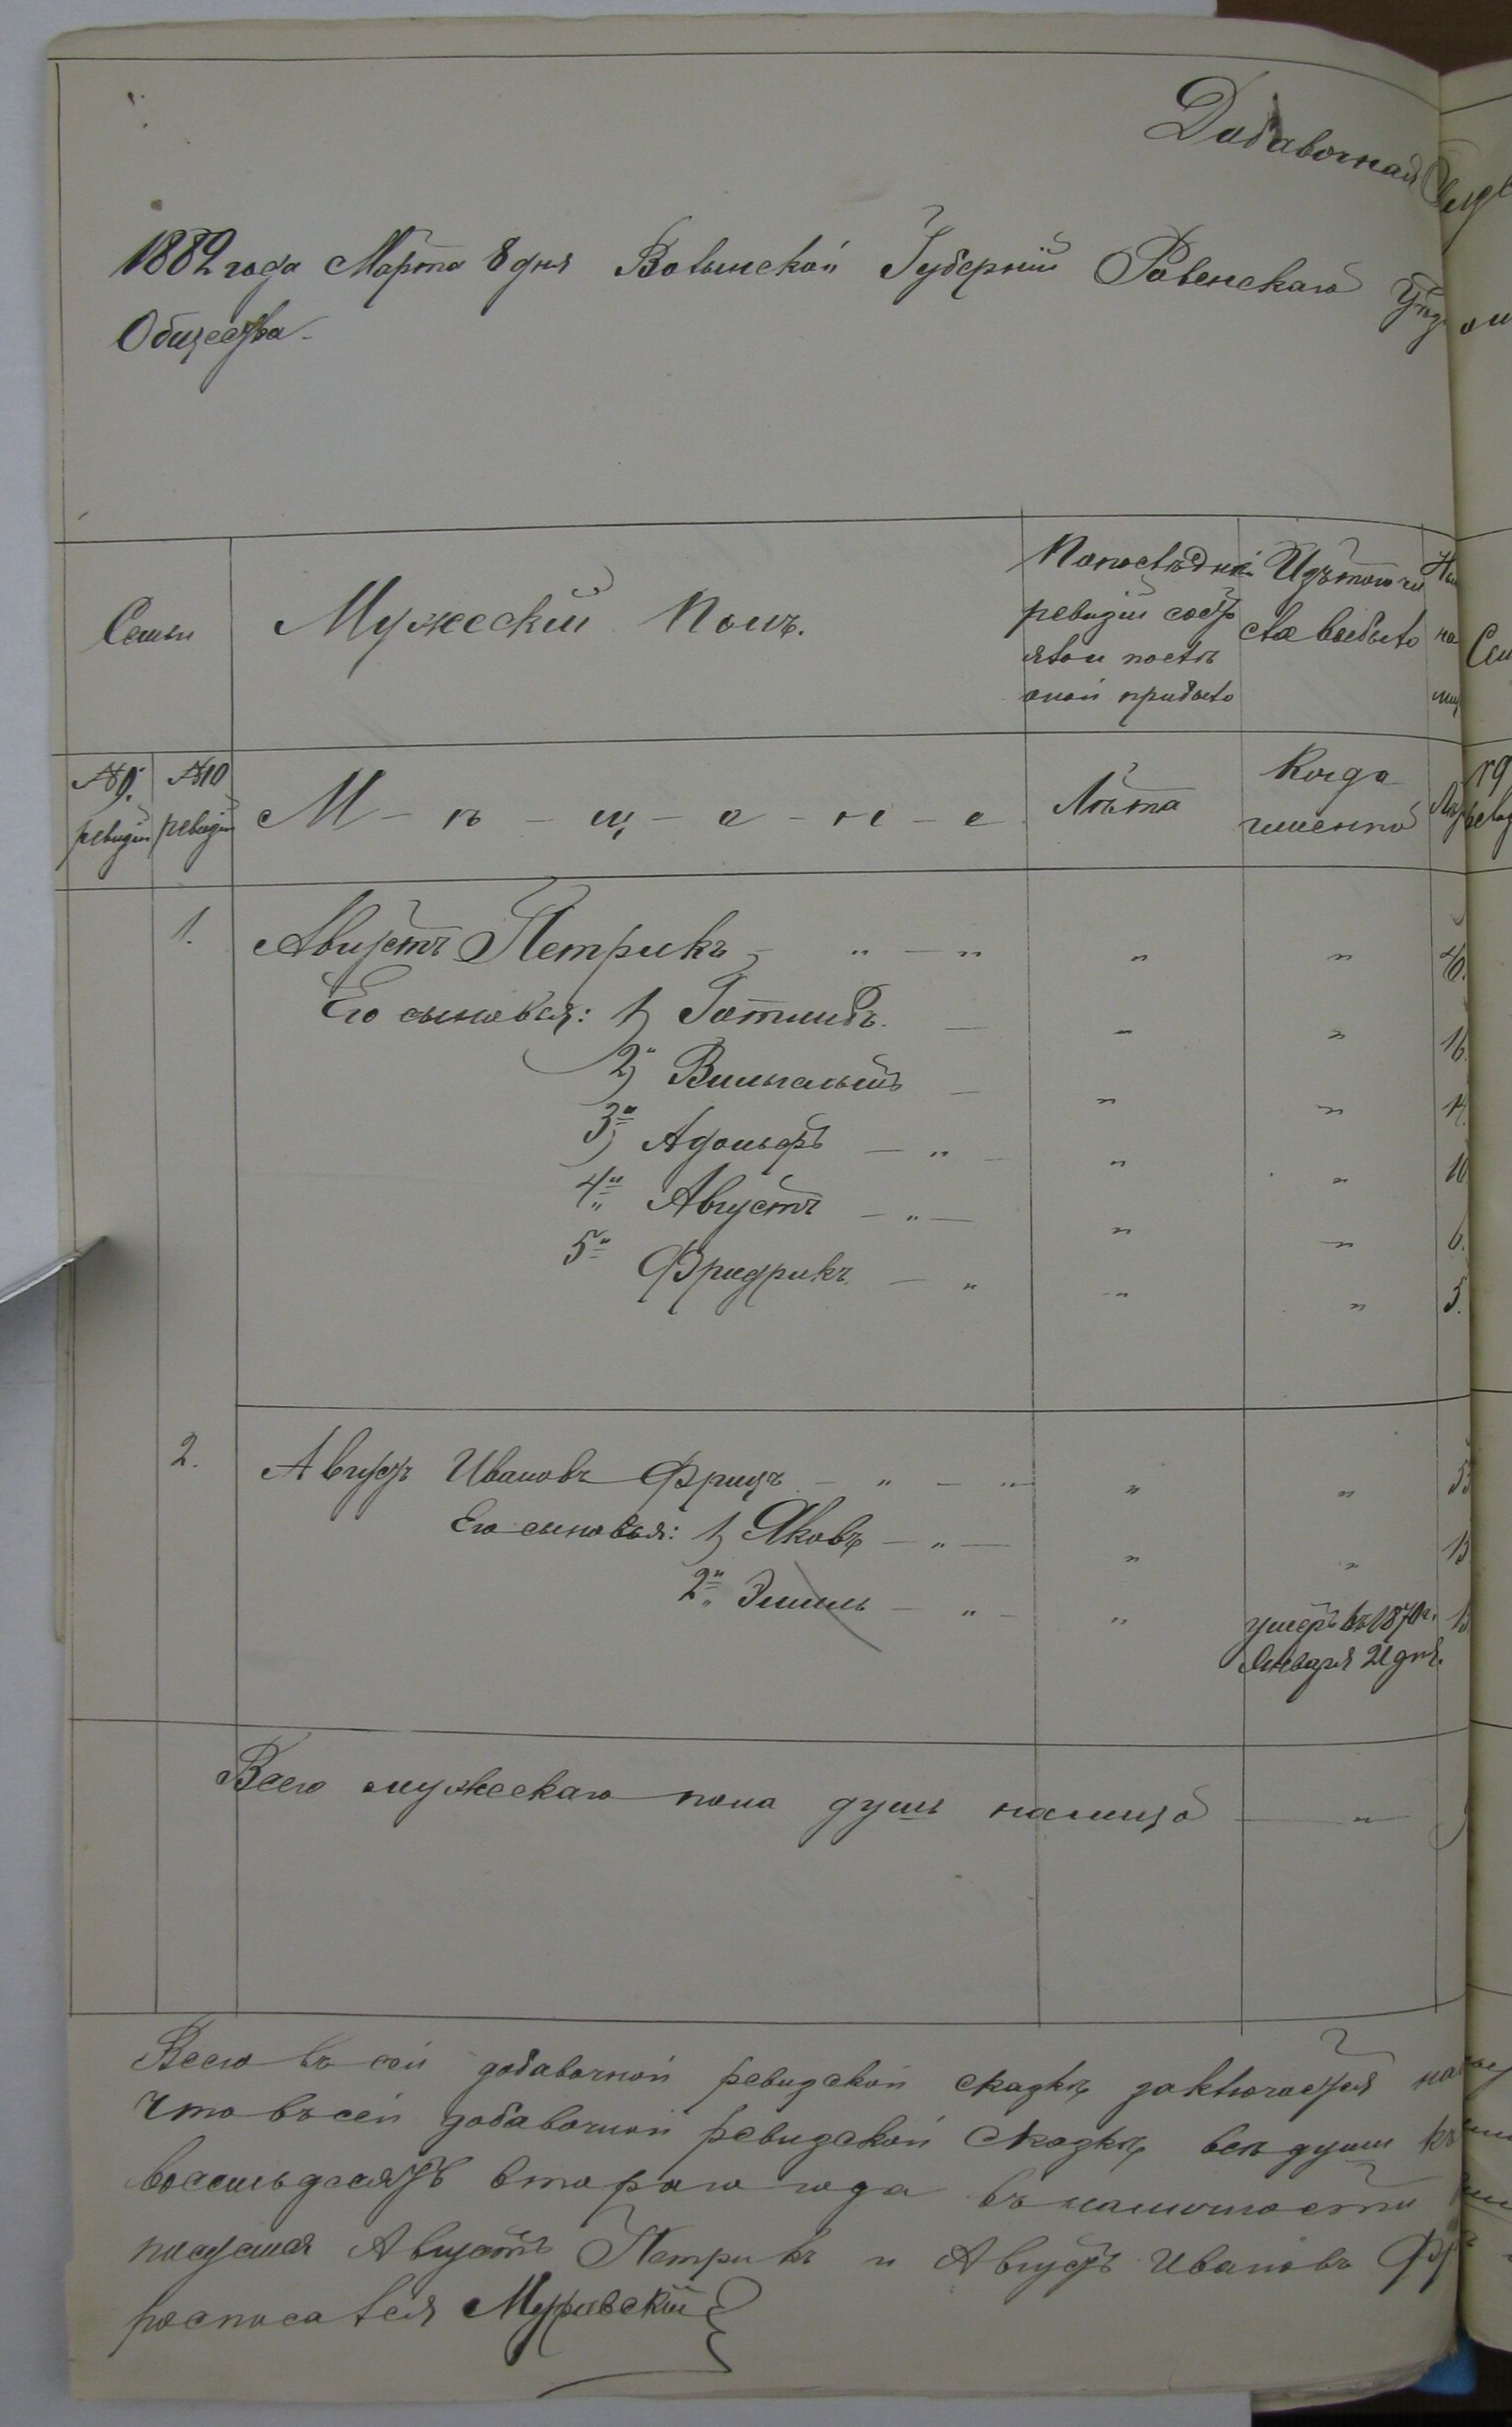 Добавочная
1882 года Марта 8 дня Волынской Губернии Ровенскаго
Общества
Семьи
Мужескій Полъ.
По последней
ревизіи состо
яло и послѣ
оной прибыло
Изътого чи
сла выбыло
№ 9.
ревизіи
№ 10
ревизіи
М - ѣ - щ - а - н - е
Лѣта
Когда
именно
1.
Августъ Петрикъ - " - " " " 40.
Его сыновья: 1) Готлибъ. - " " 16.
2) Вильгельмъ - " "
3) Адольфъ - " - " " 10
4" Августъ - " - " " 6.
5" Фридрикъ - " " " 5.
2.
Августъ Ивановъ Фрицъ - " - " " "
Его сыновья: 1) Яковъ - " - " "
2" Эмиль - " - " умеръ въ 1870 г.
Января 21 дня.
Всего мужескаго пола душъ налицо "
Всего въ сей добавочной ревизской сказкѣ заключается
Что въ сей добавочной ревизской сказкѣ всѣ души къ
восемьдесятъ втораго года въ наличности
Августъ Петрикъ и Августъ Ивановъ
росписался Муравскій